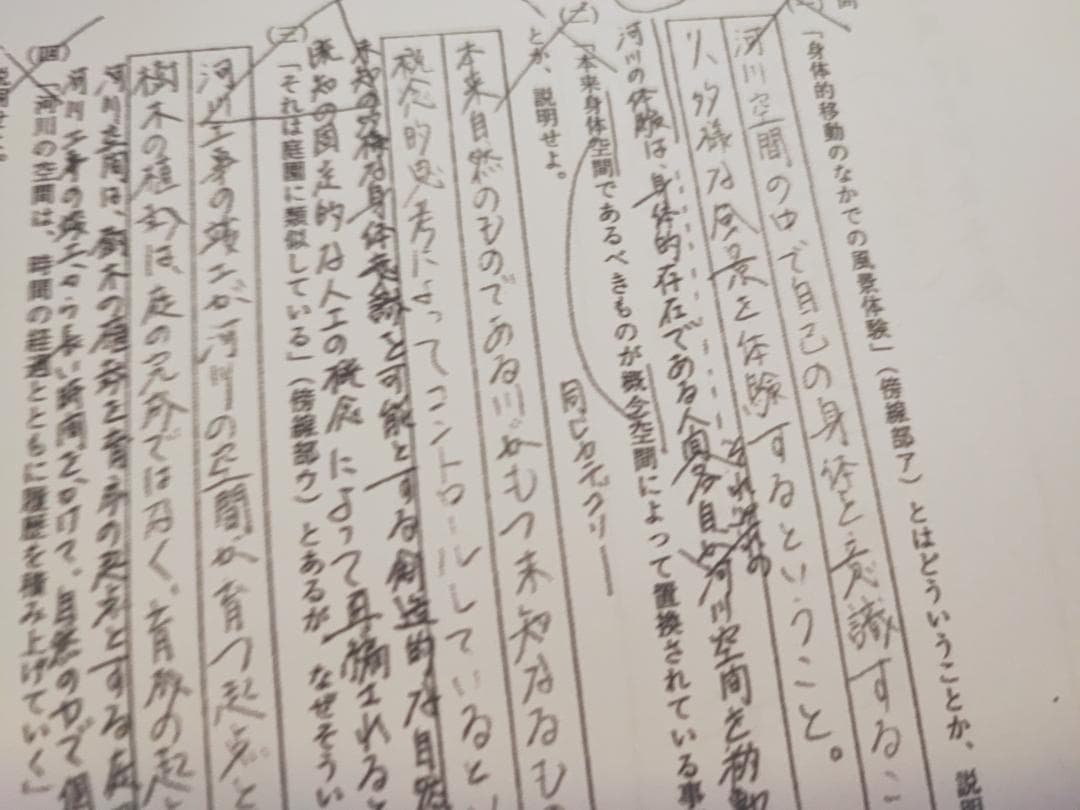 「身体的移動のなかでの風景体験」（傍線部ア）とはどういうことか、説
河川空間の中で自己の身体を意識するこ
り、多様な風景を体験するということ。
河川の体験は、身体的存在である人間各自が河川空間を移動
それぞれの
(二)「本来身体空間であるべきものが概念空間によって置換されている事
とか、説明せよ。
同じカテゴリー
本来自然のものである川がもつ未知なるも
概念的思考によってコントロールしているとい
未知の多様な身体意識を可能とする創造的な自然
既知の固定的な人工の概念によって再編されると
(三)「それは庭園に類似している」（傍線部ウ）とあるが、なぜそうい
河川工事の竣工が河川の空間が育つ起点と
樹木の植栽は、庭の完成ではなく、育成の起
河川空間は、樹木の植栽を育成の起点とする庭
河川工事の竣工から長い時間をかけて、自然の力で
(四)「河川の空間は、時間の経過とともに履歴を積み上げていく」
説明せよ。